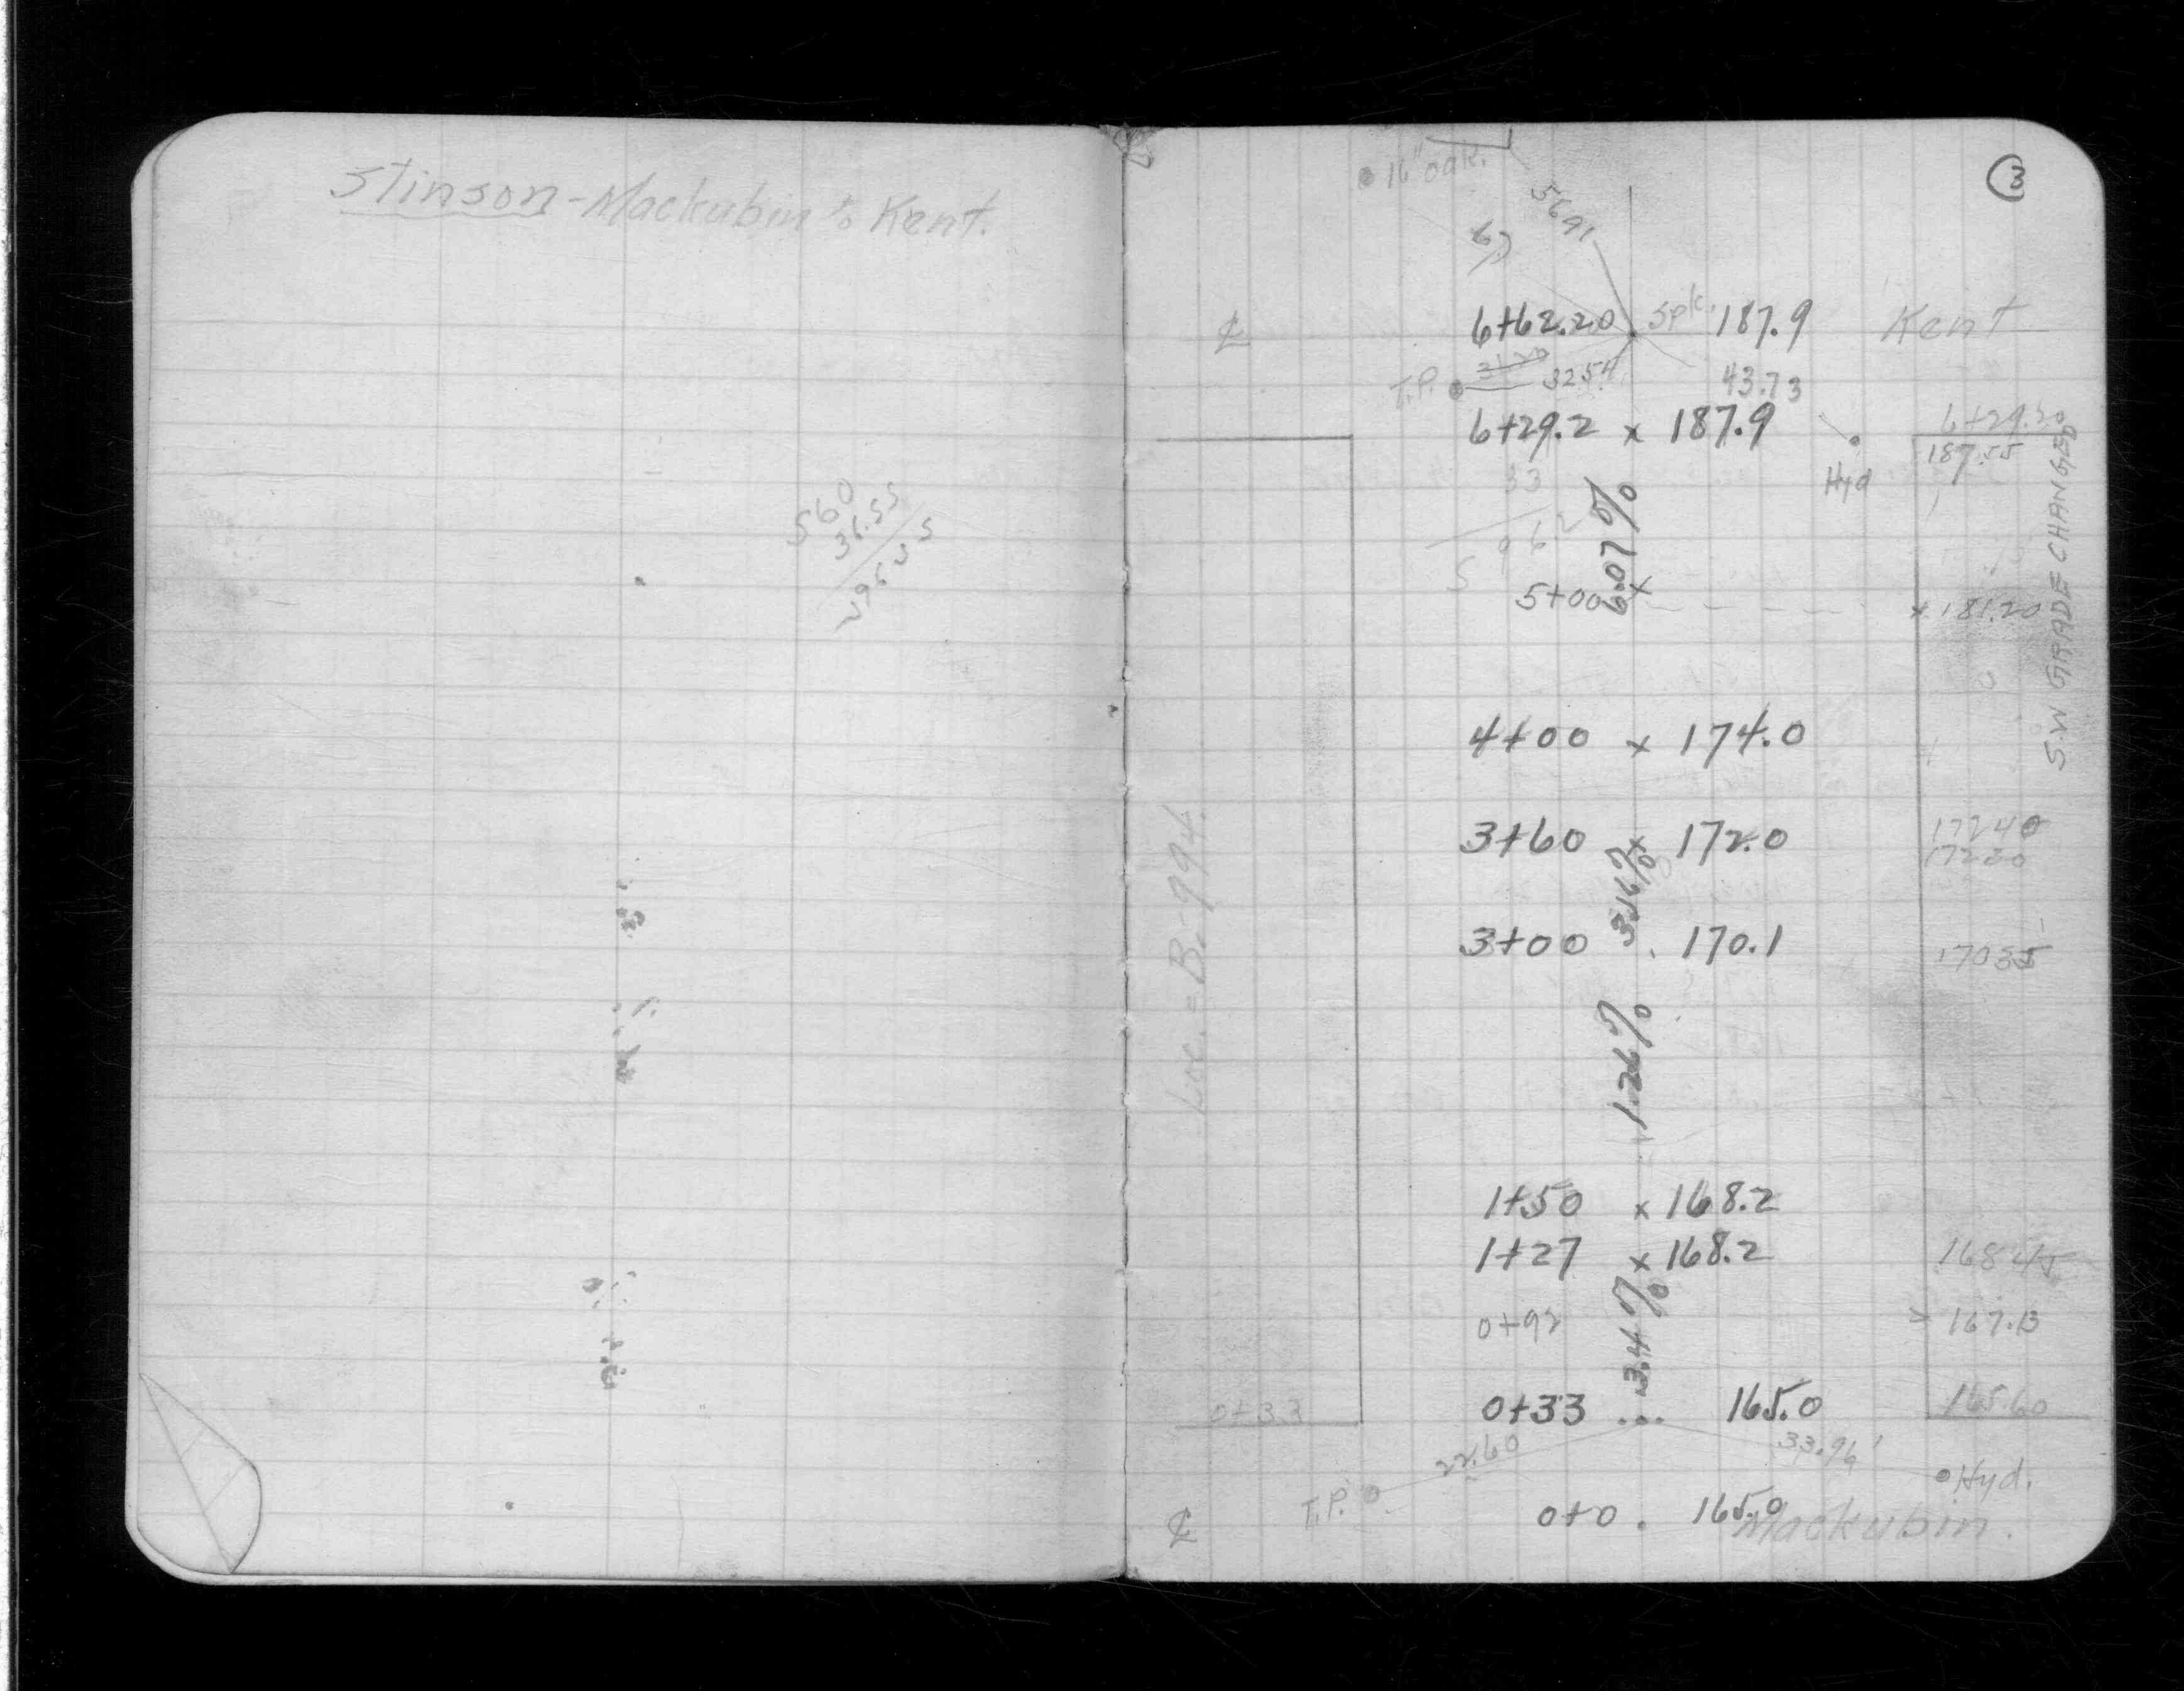 Stinson - Mackubin to Kent.
560
36.55
3
16" oak.
5691
6+62.20 Spk. 187.9 Kent
T.P. 3254 43.73
6+29.2 x 187.9 6+29.20
187.55
Hyd
33
5962
6.07%
5+00 x x 181.20
S.W GRADE CHANGED
4+00 x 174.0
3+60 x 172.0 17240
17230
3.16%
3+00 . 170.1 17035
Loc. = B-994.
1.26%
1+50 x 168.2
1+27 x 168.2 16845
3.4%
0+92 167.13
0+33 0+33 ... 165.0 165.60
22.60 33.96'
T.P. Hyd.
℄ 0+0 . 165.0 Mackubin.